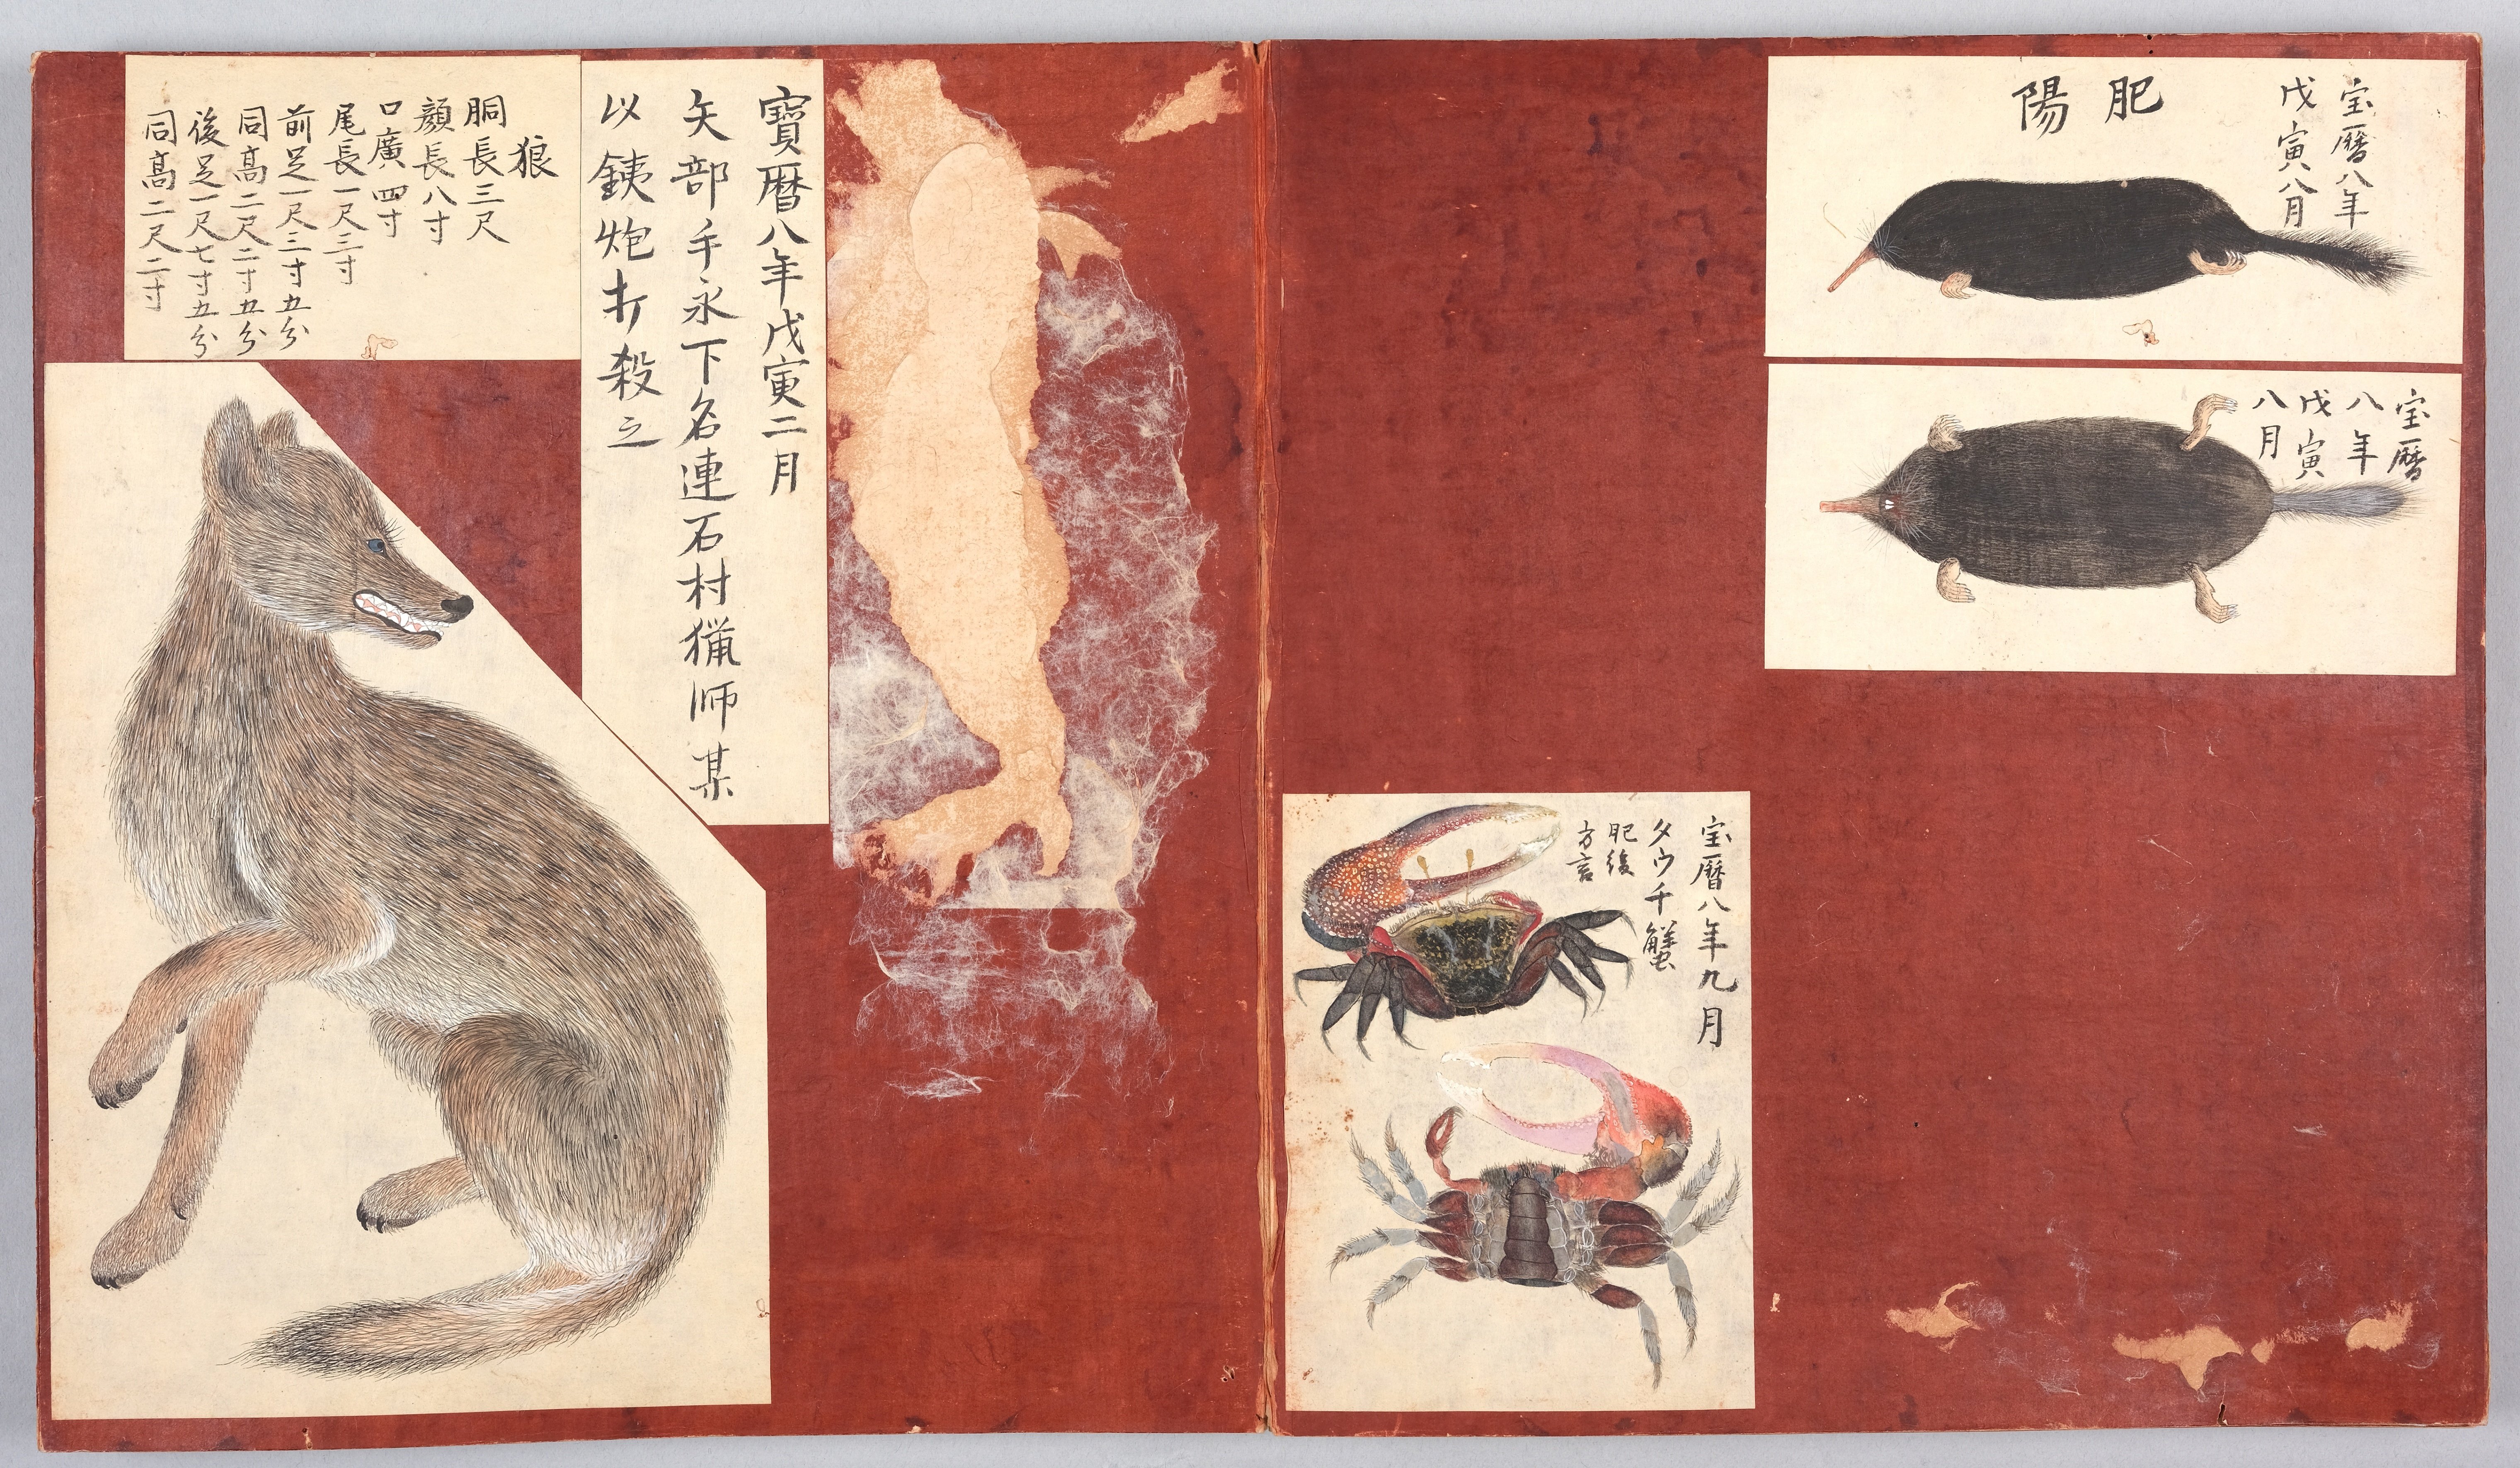 宝暦八年
戊寅八月
肥陽
宝暦
八年
戊寅
八月
宝暦八年九月
タウチ蟹
肥後
方言
寶暦八年戊寅二月
矢部手永下名連石村猟师某
以銕炮打殺之
狼
胴長三尺
顔長八寸
口廣四寸
尾長一尺三寸
前足一尺三寸五分
同髙二尺二寸五分
後足一尺七寸五分
同髙二尺二寸